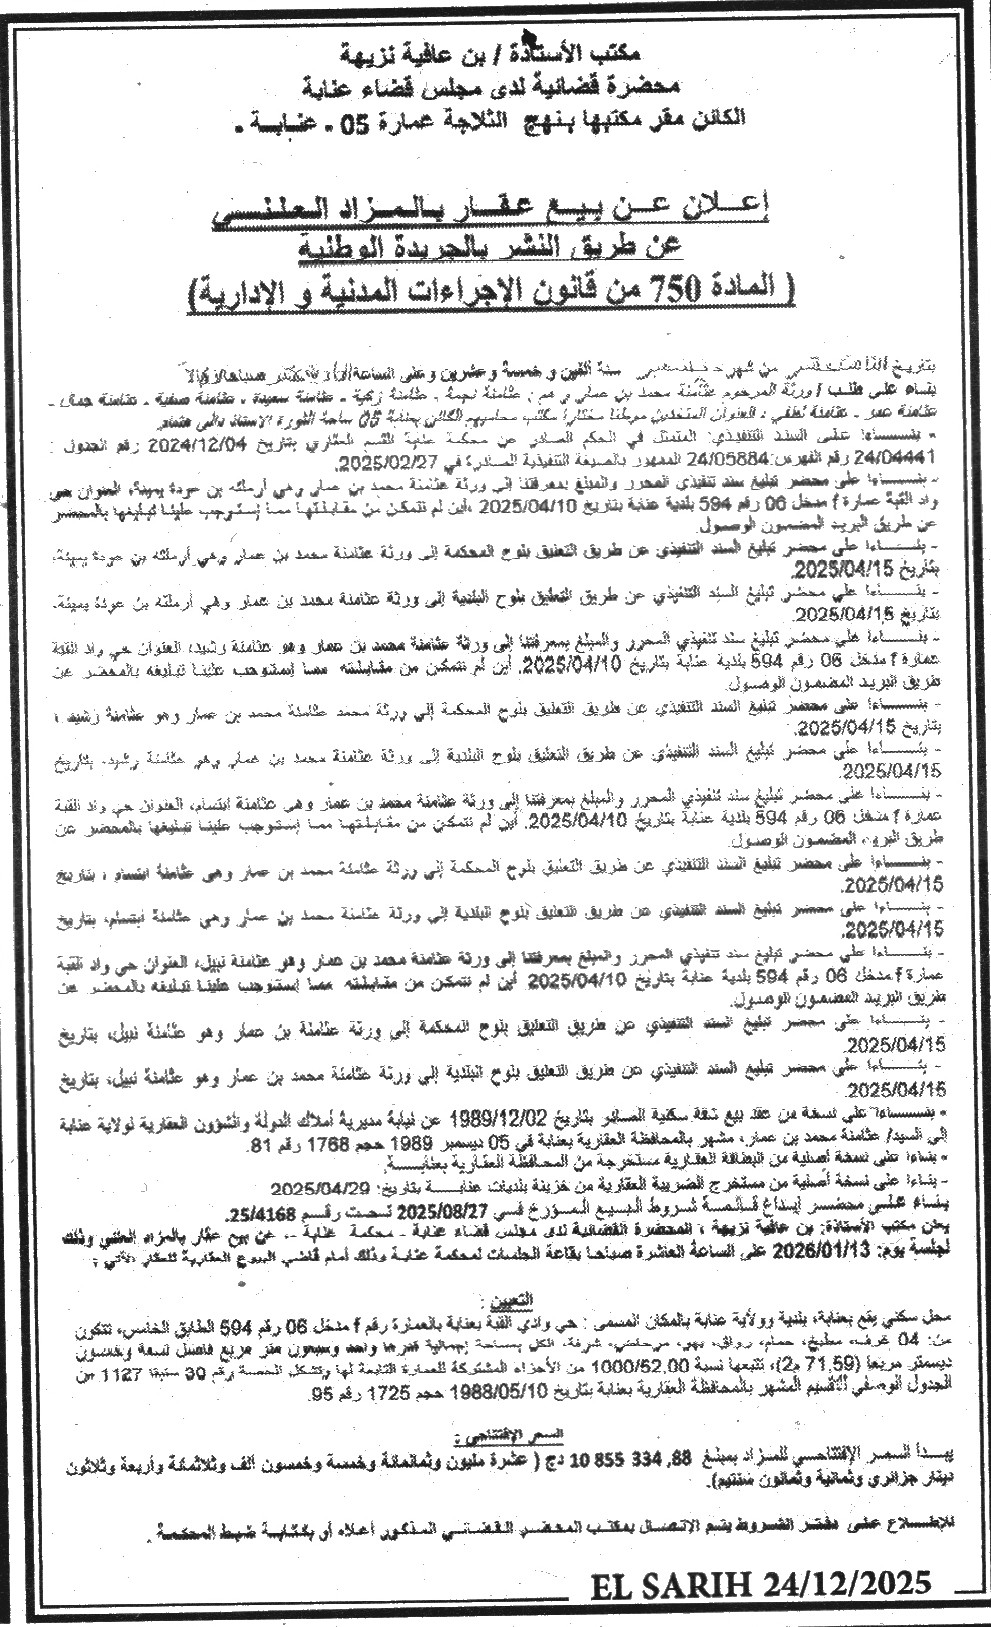 مكتب الأستاذة / بن عافية نزيهة
محضرة قضائية لدى مجلس قضاء عنابة
الكائن مقر مكتبها بنهج الثلاجة عمارة 05 - عنابة -
إعلان عن بيع عقار بالمزاد العلني
عن طريق النشر بالجريدة الوطنية
( المادة 750 من قانون الإجراءات المدنية و الإدارية)
بتاريخ من شهر سنة الفين و خمسة و عشرين وعلى الساعة
بناء على طلب / ورثة المرحوم عثامنة محمد بن عماري و هم : عثامنة نجمة - عثامنة زكية - عثامنة سعيدة - عثامنة صفية - عثامنة جمال -
عثامنة عمر - عثامنة لطفي ، العنوان المتخذين موطنا مختارا مكتب محاميهم الكائن بعنابة 05 ساحة الثورة الاستاذ
- بنــــاءا على السند التنفيذي: المتمثل في الحكم الصادر عن محكمة عنابة القسم العقاري بتاريخ 2024/12/04 رقم الجدول :
24/04441 رقم الفهرس:24/05884 الممهور بالصيغة التنفيذية الصادرة في 2025/02/27.
- بنــــاءا على محضر تبليغ سند تنفيذي المحرر والمبلغ بمعرفتنا إلى ورثة عثامنة محمد بن عمار وهي أرملته بن عودة يمينة، العنوان حي
واد القبة عمارة f مدخل 06 رقم 594 بلدية عنابة بتاريخ 2025/04/10 ،أين لم نتمكن من مقابلتها مما إستوجب علينا تبليغها بالمحضر
عن طريق البريد المضمون الوصول.
- بنــــاءا على محضر تبليغ السند التنفيذي عن طريق التعليق بلوح المحكمة إلى ورثة عثامنة محمد بن عمار وهي أرملته بن عودة يمينة،
بتاريخ 2025/04/15.
- بنــــاءا على محضر تبليغ السند التنفيذي عن طريق التعليق بلوح البلدية إلى ورثة عثامنة محمد بن عمار وهي أرملته بن عودة يمينة،
بتاريخ 2025/04/15.
- بنــــاءا على محضر تبليغ سند تنفيذي المحرر والمبلغ بمعرفتنا إلى ورثة عثامنة محمد بن عمار وهو عثامنة رشيد، العنوان حي واد القبة
عمارة f مدخل 06 رقم 594 بلدية عنابة بتاريخ 2025/04/10. أين لم نتمكن من مقابلته مما إستوجب علينا تبليغه بالمحضر عن
طريق البريد المضمون الوصول.
- بنــــاءا على محضر تبليغ السند التنفيذي عن طريق التعليق بلوح المحكمة إلى ورثة محمد عثامنة محمد بن عمار وهو عثامنة رشيد ،
بتاريخ 2025/04/15.
- بنــــاءا على محضر تبليغ السند التنفيذي عن طريق التعليق بلوح البلدية إلى ورثة عثامنة محمد بن عمار وهي عثامنة رشيد، بتاريخ
2025/04/15.
- بنــــاءا على محضر تبليغ سند تنفيذي المحرر والمبلغ بمعرفتنا إلى ورثة عثامنة محمد بن عمار وهي عثامنة ابتسام، العنوان حي واد القبة
عمارة f مدخل 06 رقم 594 بلدية عنابة بتاريخ 2025/04/10. أين لم نتمكن من مقابلتها مما إستوجب علينا تبليغها بالمحضر عن
طريق البريد المضمون الوصول.
- بنــــاءا على محضر تبليغ السند التنفيذي عن طريق التعليق بلوح المحكمة إلى ورثة عثامنة محمد بن عمار وهي عثامنة ابتسام ، بتاريخ
2025/04/15.
- بنــــاءا على محضر تبليغ السند التنفيذي عن طريق التعليق بلوح البلدية إلى ورثة عثامنة محمد بن عمار وهي عثامنة ابتسام، بتاريخ
2025/04/15.
- بنــــاءا على محضر تبليغ سند تنفيذي المحرر والمبلغ بمعرفتنا إلى ورثة عثامنة محمد بن عمار وهو عثامنة نبيل، العنوان حي واد القبة
عمارة f مدخل 06 رقم 594 بلدية عنابة بتاريخ 2025/04/10 أين لم نتمكن من مقابلته مما إستوجب علينا تبليغه بالمحضر عن
طريق البريد المضمون الوصول.
- بنــــاءا على محضر تبليغ السند التنفيذي عن طريق التعليق بلوح المحكمة إلى ورثة عثامنة بن عمار وهو عثامنة نبيل، بتاريخ
2025/04/15.
- بنــــاءا على محضر تبليغ السند التنفيذي عن طريق التعليق بلوح البلدية إلى ورثة عثامنة محمد بن عمار وهو عثامنة نبيل، بتاريخ
2025/04/15.
- بنــــاءا على نسخة من عقد بيع شقة سكنية الصادر بتاريخ 1989/12/02 عن نيابة مديرية أملاك الدولة والشؤون العقارية لولاية عنابة
إلى السيد/ عثامنة محمد بن عمار، مشهر بالمحافظة العقارية بعنابة في 05 ديسمبر 1989 حجم 1768 رقم 81.
- بناءا على نسخة أصلية من البطاقة العقارية مستخرجة من المحافظة العقارية بعنابــــة.
- بناءا على نسخة أصلية من مستخرج الضريبة العقارية من خزينة بلديات عنابــــة بتاريخ: 2025/04/29
بناء على محضر إيداع قائمة شروط البيع المؤرخ في 2025/08/27 تحت رقم 25/4168.
يعلن مكتب الأستاذة: بن عافية نزيهة ، المحضرة القضائية لدى مجلس قضاء عنابة - محكمة عنابة - عن بيع عقار بالمزاد العلني وذلك
لجلسة يوم: 2026/01/13 على الساعة العاشرة صباحا بقاعة الجلسات لمحكمة عنابة وذلك أمام قاضي البيوع العقارية للعقار الآتي :
التعيين :
محل سكني يقع بعنابة، بلدية وولاية عنابة بالمكان المسمى : حي وادي القبة بعنابة بالعمارة رقم f مدخل 06 رقم 594 الطابق الخامس، تتكون
من: 04 غرف، مطبخ، حمام، رواق، بهو، مرحاض، شرفة، الكل بمساحة إجمالية قدرها واحد وسبعون متر مربع فاصل تسعة وخمسون
ديسمتر مربعا (71,59 م2)، تتبعها نسبة 1000/52.00 من الأجزاء المشتركة للعمارة التابعة لها وتشكل الحصة رقم 30 سبقا 1127 من
الجدول الوصفي للتقسيم المشهر بالمحافظة العقارية بعنابة بتاريخ 1988/05/10 حجم 1725 رقم 95.
السعر الإفتتاحي :
يبدأ السعر الإفتتاحي للمزاد بمبلغ 10 855 334 ,88 دج ( عشرة مليون وثمانمائة وخمسة وخمسون ألف وثلاثمائة وأربعة وثلاثون
دينار جزائري وثمانية وثمانون سنتيم).
للإطلاع على دفتر الشروط يتم الاتصال بمكتب المحضر القضائي المذكور أعلاه أو بكتابة ضبط المحكمة .
EL SARIH 24/12/2025